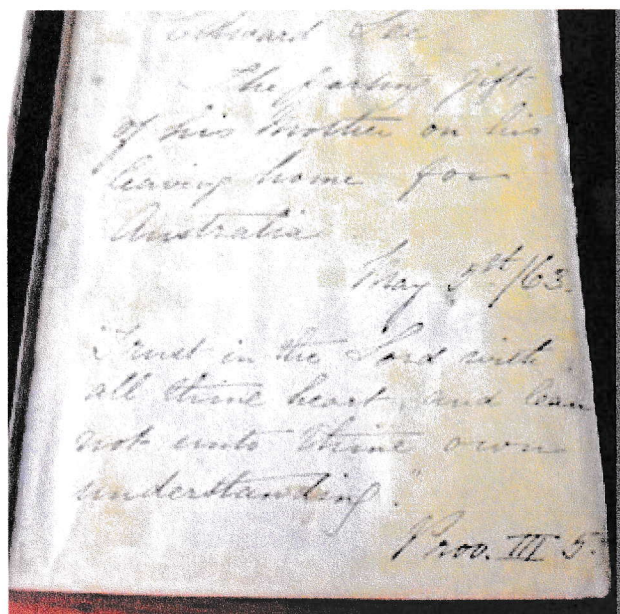 Edward Lee
The parting gift
of his Mother on his
leaving home for
Australia
May /63.
"Trust in the Lord with
all thine heart, and lean
not unto thine own
understanding."
Prov. III 5.